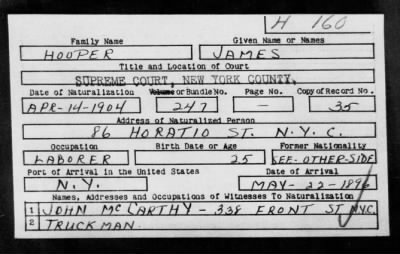 H 160
Family Name Given Name or Names
HOOPER JAMES
Title and Location of Court
SUPREME COURT, NEW YORK COUNTY.
Date of Naturalization Volume or Bundle No. Page No. Copy of Record No.
APR-14-1904 247 — 35
Address of Naturalized Person
86 HORATIO ST. N.Y.C.
Occupation Birth Date or Age Former Nationality
LABORER 25 SEE-OTHER-SIDE
Port of Arrival in the United States Date of Arrival
N.Y. MAY-22-1896
Names, Addresses and Occupations of Witnesses To Naturalization
1 JOHN McCARTHY - 338 FRONT ST. N.Y.C.
2 TRUCKMAN